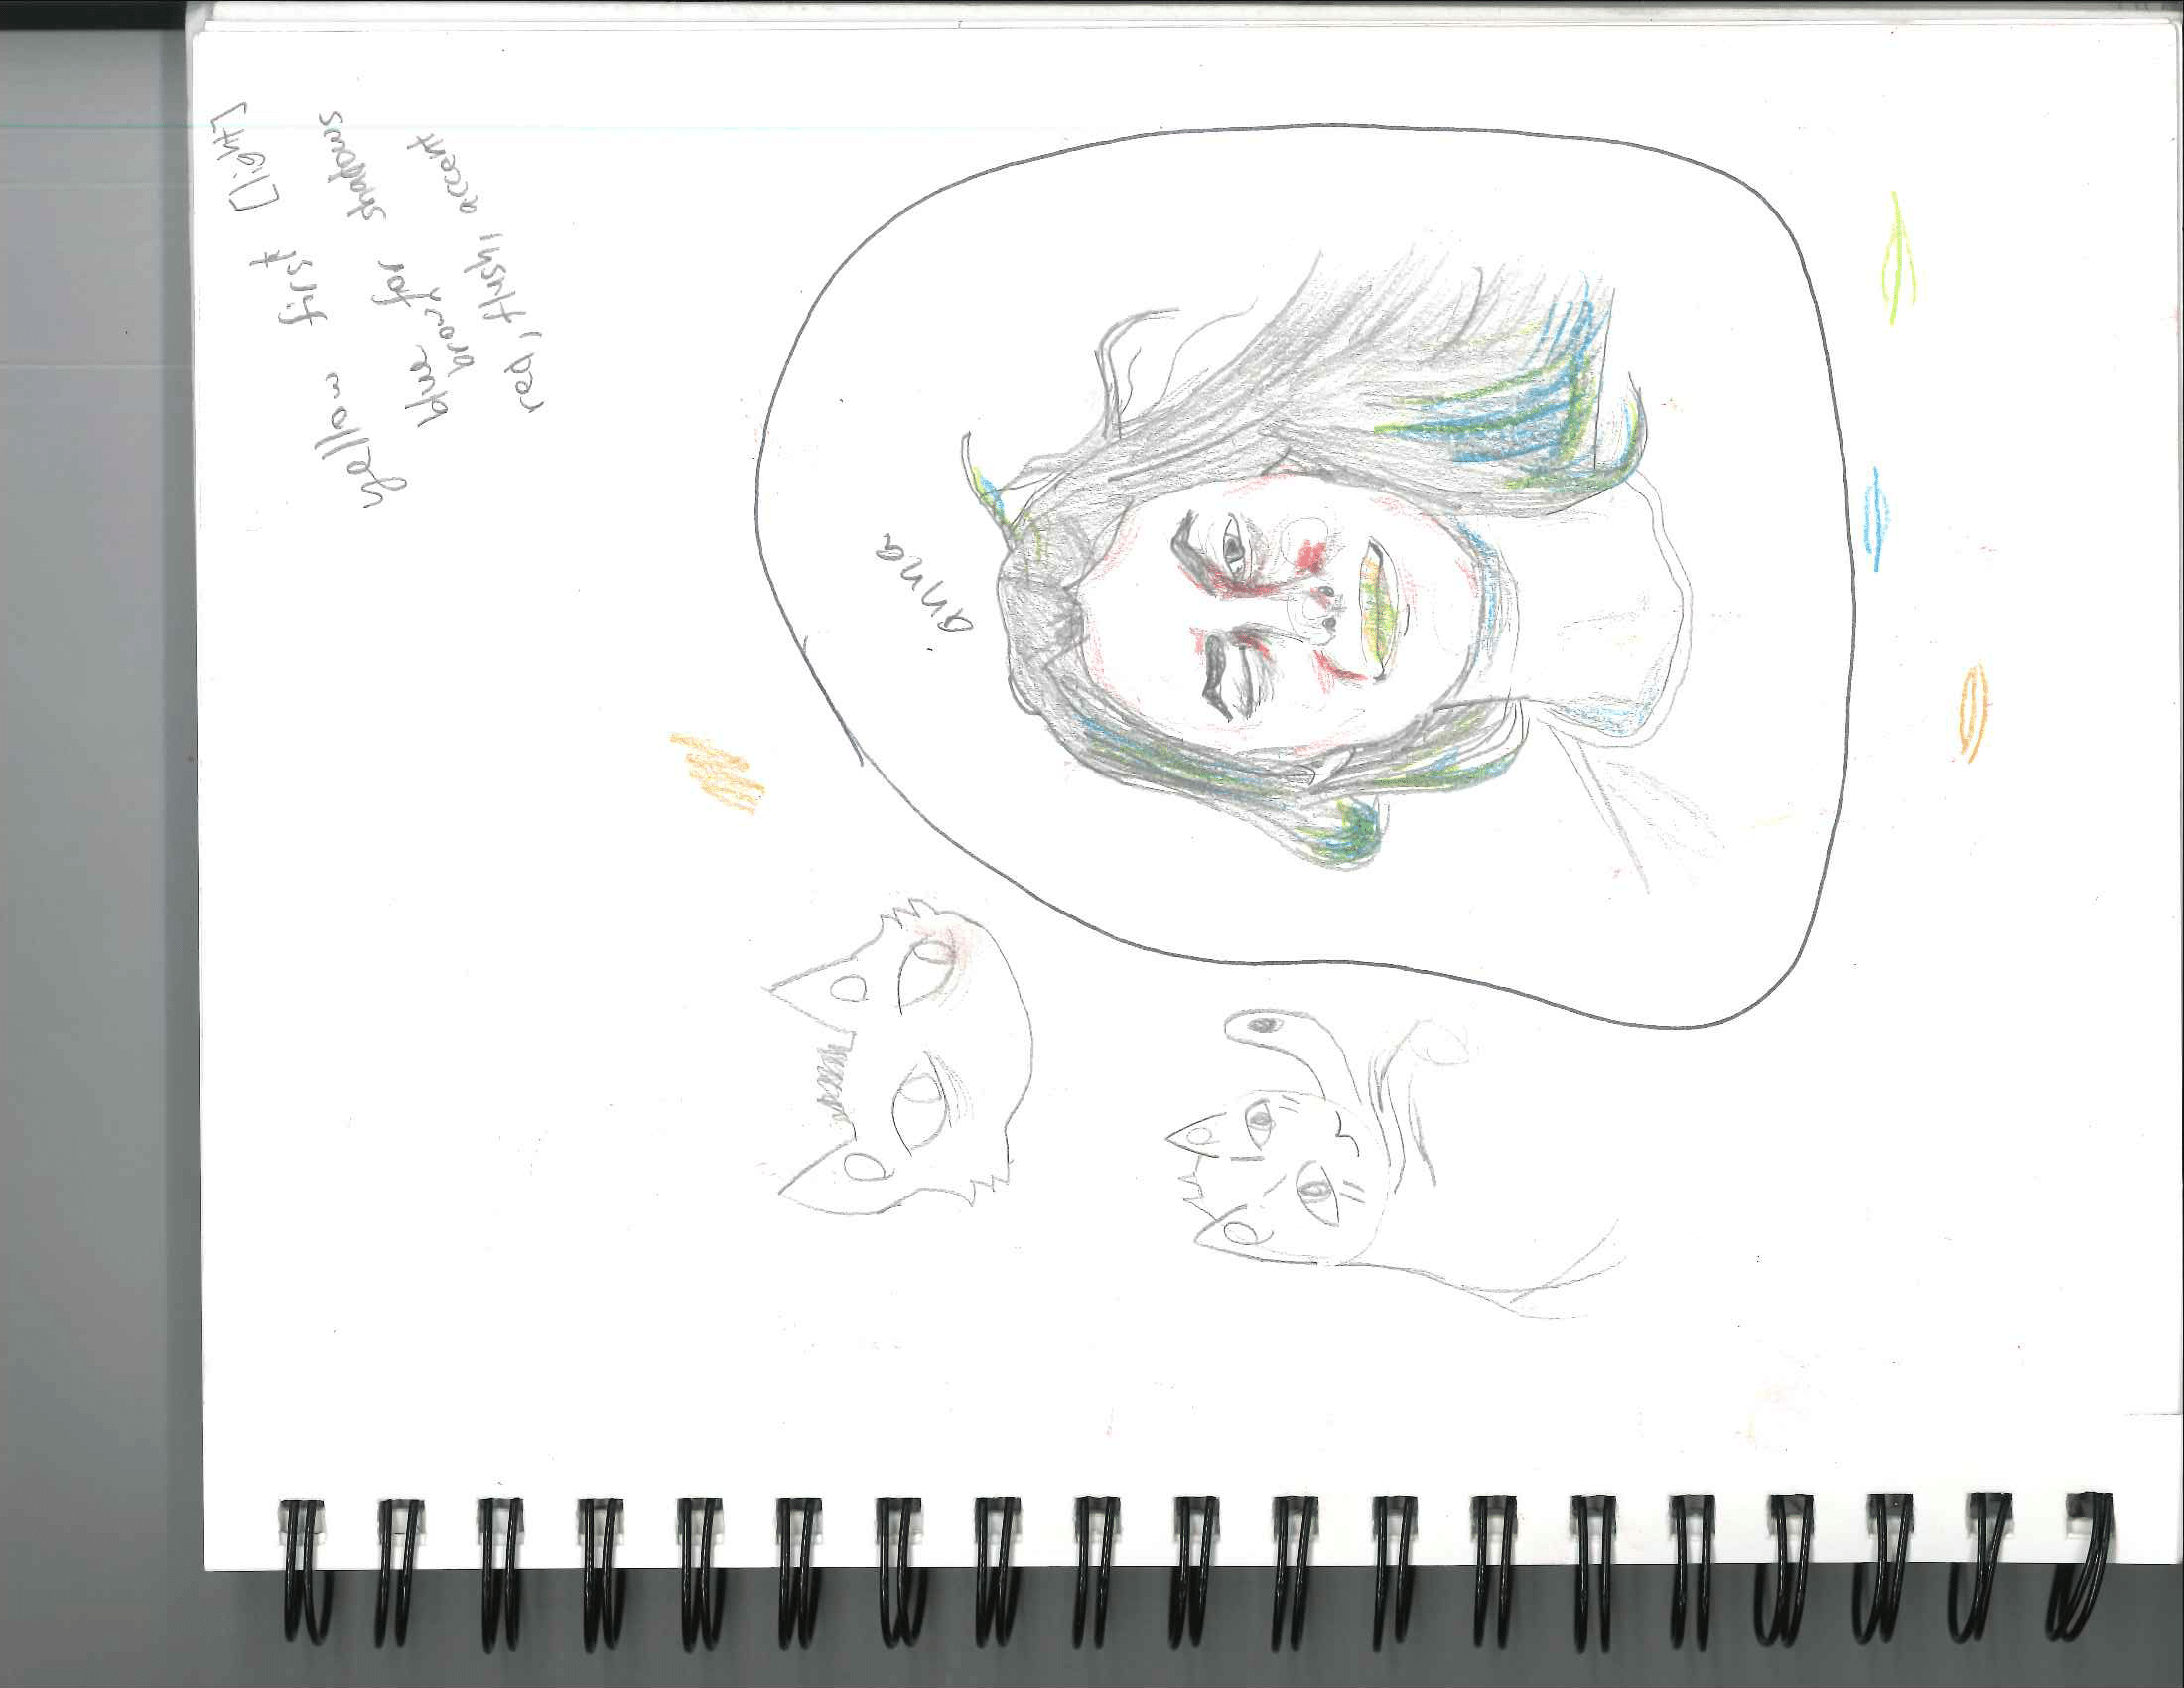 yellow first [light]
blue for shadows
brow,
red, flush, accent
anna